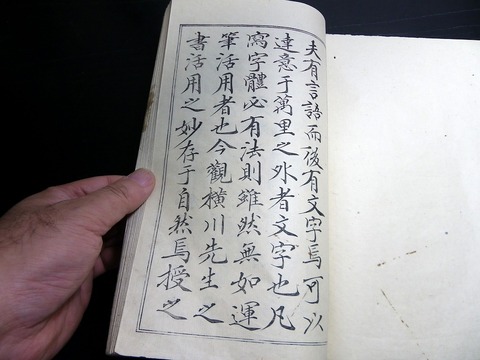 夫有言語而後有文字焉可以
達意于萬里之外者文字也凡
寫字體必有法則雖然無如運
筆活用者也今觀橫川先生之
書活用之妙存于自然焉授之